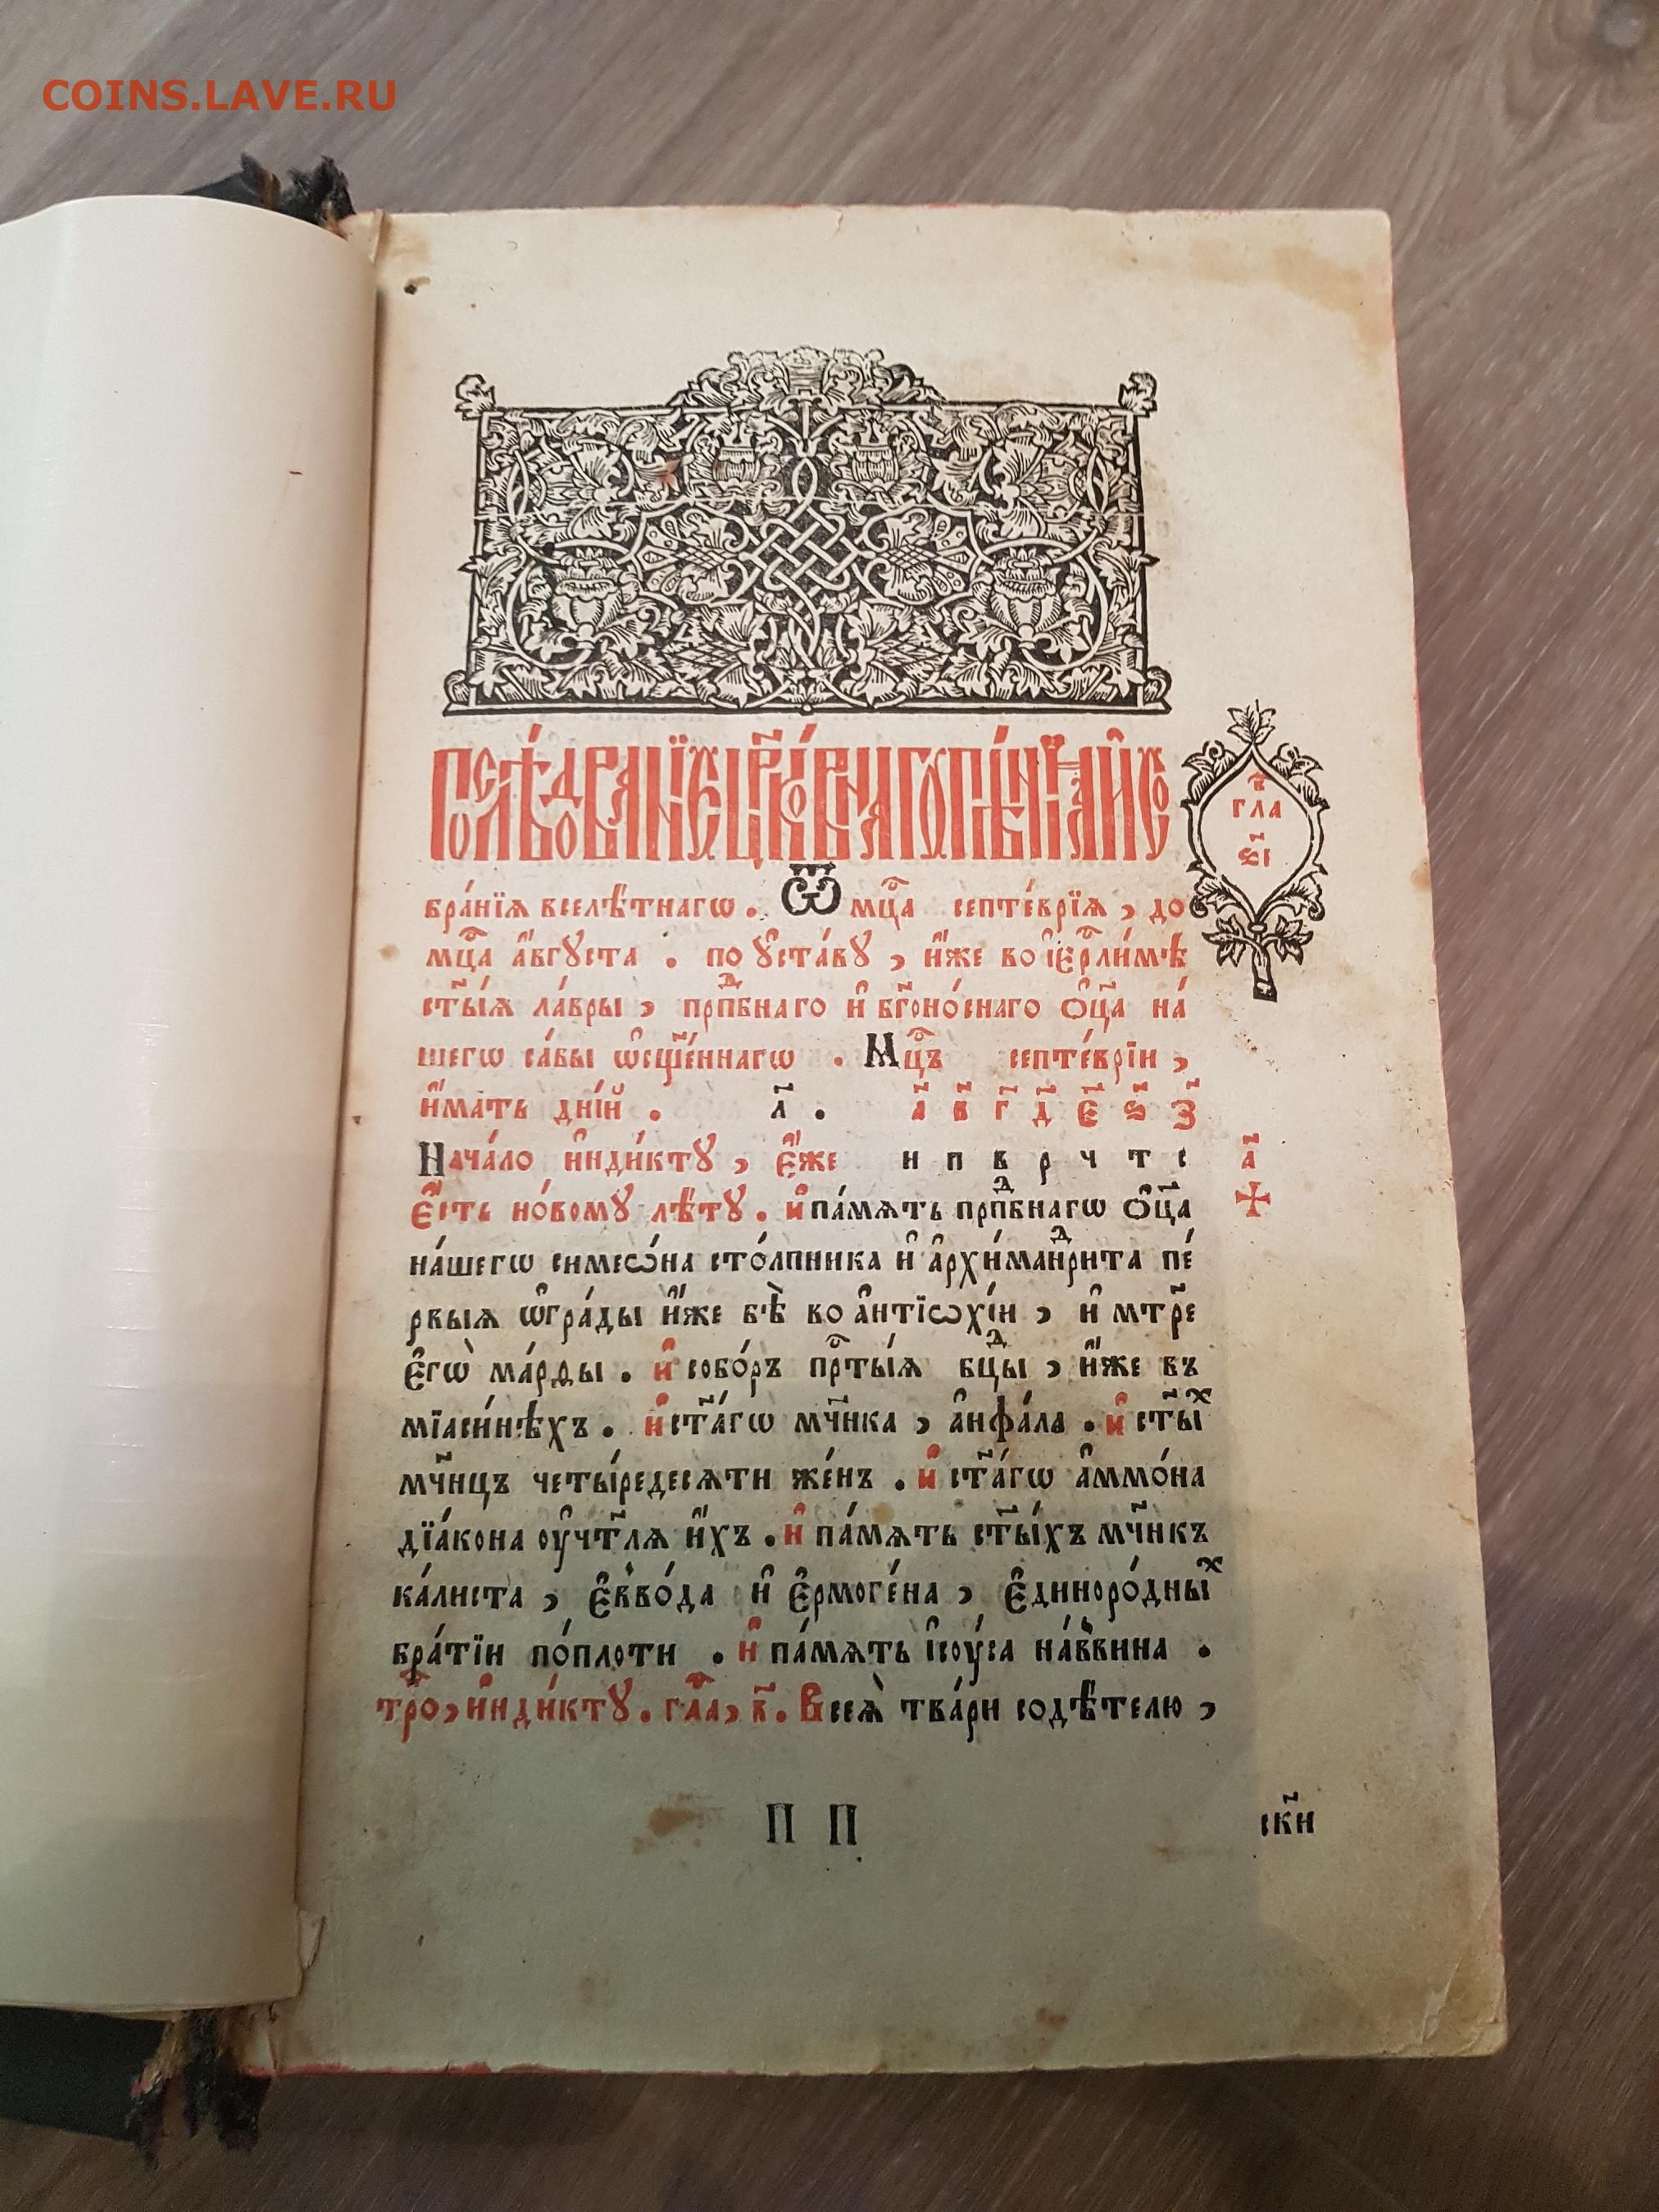 COINS.LAVE.RU
Послѣ́дованїе цр҃ко́внаго пѣ́нїѧ, и҆ со
гла
ѕ҃і
бра́нїѧ вселѣ́тнагѡ . Ѿ мц҇а септе́врїѧ , до
мц҇а а҆́вгꙋста . по ꙋ҆ста́вꙋ , и҆́же во і҆ерⷭ҇ли́мѣ
ст҃ы́ѧ ла́вры , прпⷣбнаго и҆ бг҃оно́снаго ѻ҆ц҃а на́
шегѡ са́вы ѡ҆сщ҃е́ннагѡ . Мц҇ъ септе́врїи ,
и҆́мать дні́й . л҃ . а҃ в҃ г҃ д҃ є҃ ѕ҃ з҃
Нача́ло и҆нди́ктꙋ , є҆́же н п в р ч т с а҃
є҆́сть но́вомꙋ лѣ́тꙋ . и҆ па́мѧть прпⷣбнагѡ ѻ҆ц҃а
на́шегѡ симеѡ́на сто́лпника и҆ а҆рхи́манⷣрита пе́
рвыѧ ѡ҆гра́ды и҆́же бѣ̀ во а҆нтїѡхі́и , и҆ мт҃ре
є҆гѡ̀ ма́рѳы . и҆ собо́ръ прⷭ҇ты́ѧ бцⷣы , и҆́же въ
мїаси́нѣхъ . и҆ ст҃а́гѡ мч҃нка , а҆иѳа́ла . и҆ ст҃ыⷯ
мч҃нцъ четы́редесѧти же́нъ . и҆ ст҃а́гѡ а҆ммо́на
дїа́кона оу҆чт҃лѧ и҆́хъ . и҆ па́мѧть ст҃ы́хъ мч҃нкъ
ка́листа , є҆вво́да и҆ є҆рмоге́на , є҆диноро́дныⷯ
бра́тїи по́плоти . и҆ па́мѧть і҆соу́са на́ввина .
тро҇ , и҆нди́ктꙋ . гла҇ , в҃ . Всеѧ̀ тва́ри содѣ́телю ,
П П
ск҃и